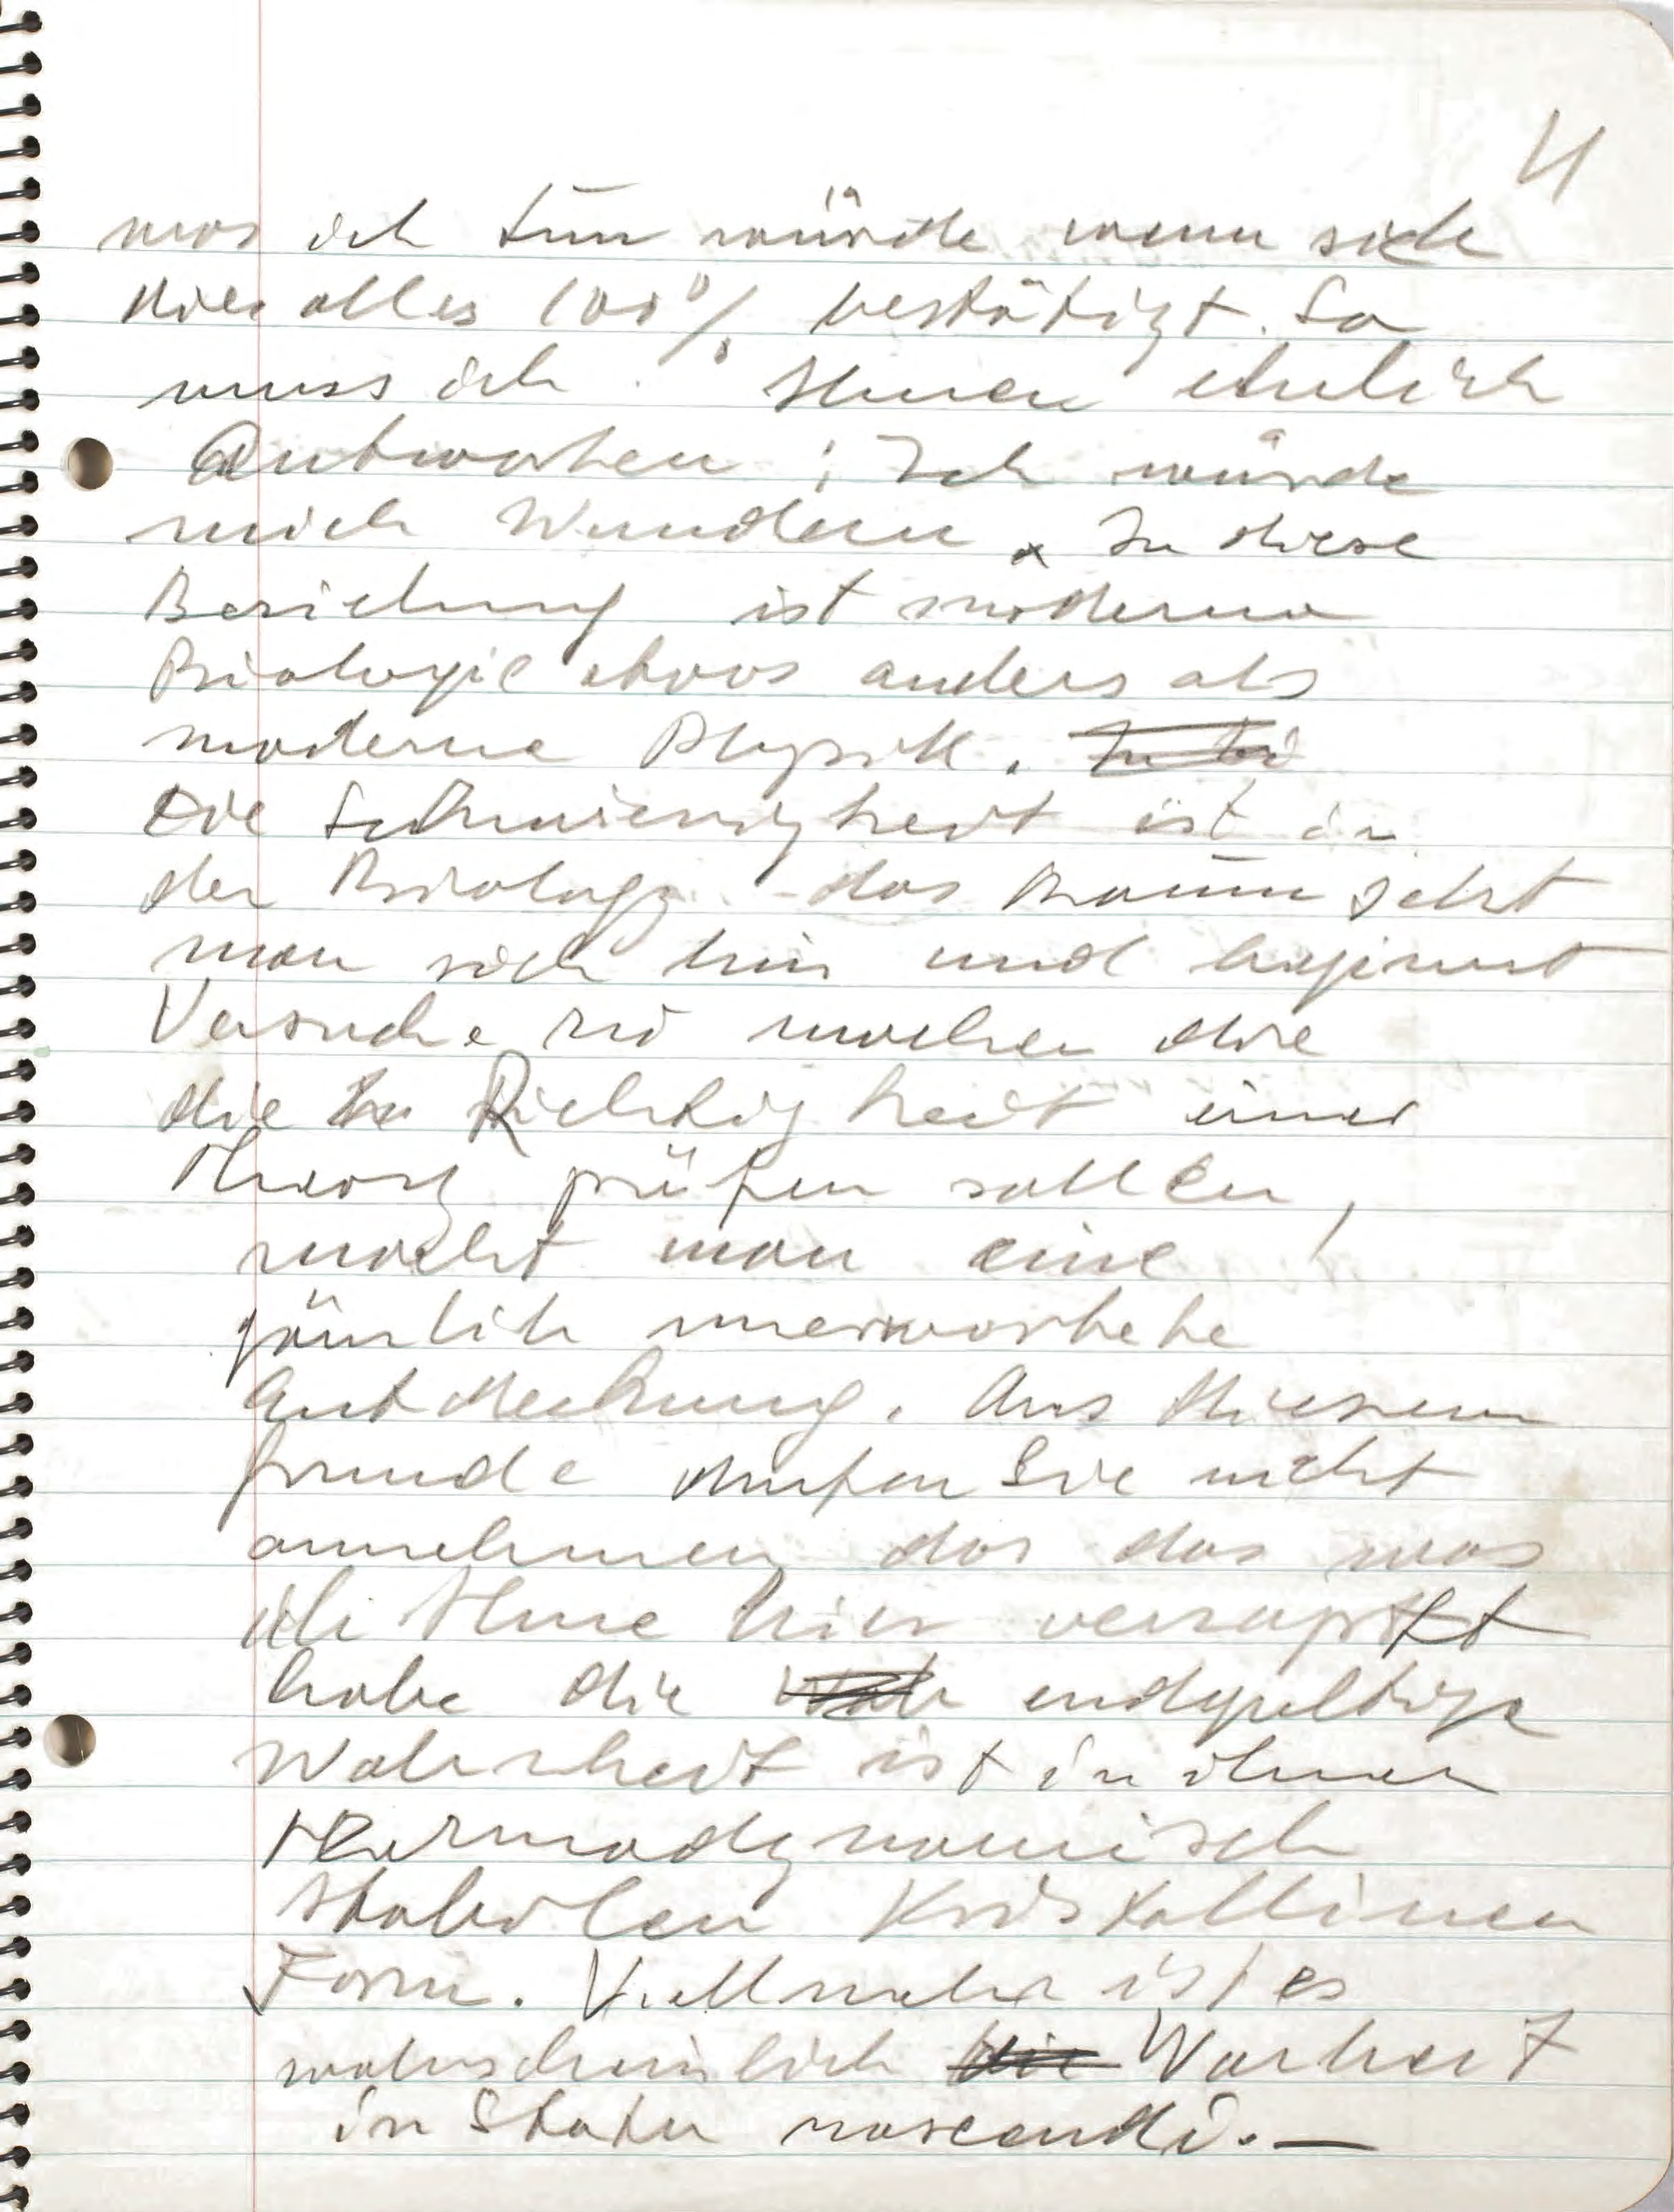 4
was ich tun würde wenn sich
dies alles 100% bestätigt. So
muss ich Ihnen ehrlich
Antworten ; Ich würde
mich Wundern. In diese
Beziehung ist moderne
Biologie etwas anders als
moderne Physik.
Die Schwierigkeit ist in
der Biology das kaum setzt
man sich hin und beginnt
Versuche zu machen die
die Richtigkeit einer
Theory prüfen sollen,
macht man eine
gänzlich unerwartete
Entdeckung. Aus diesem
Grunde durfen Sie nicht
annehmen das das was
ich Ihne hier verzapft
habe die endgultige
Wahrheit ist in ihrer
thermodynamisch
stabilen Kristallinen
Form. Viellmehr ist es
wahrscheinlich Warheit
in Statu nascendi. —